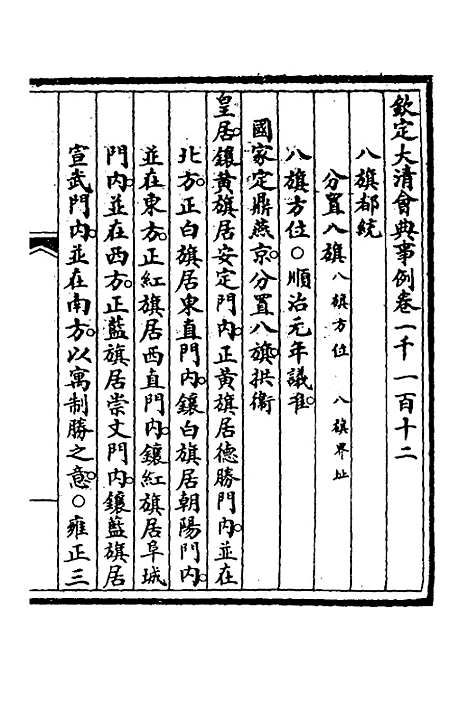 欽定大清會典事例卷一千一百十二
八旗都統
分置八旗八旗方位 八旗界址
八旗方位○順治元年議准。
國家定鼎燕京。分置八旗。拱衛
皇居。鑲黃旗居安定門內。正黃旗居德勝門內。並在
北方。正白旗居東直門內。鑲白旗居朝陽門內。
並在東方。正紅旗居西直門內。鑲紅旗居阜城
門內。並在西方。正藍旗居崇文門內。鑲藍旗居
宣武門內。並在南方。以寓制勝之意。○雍正三